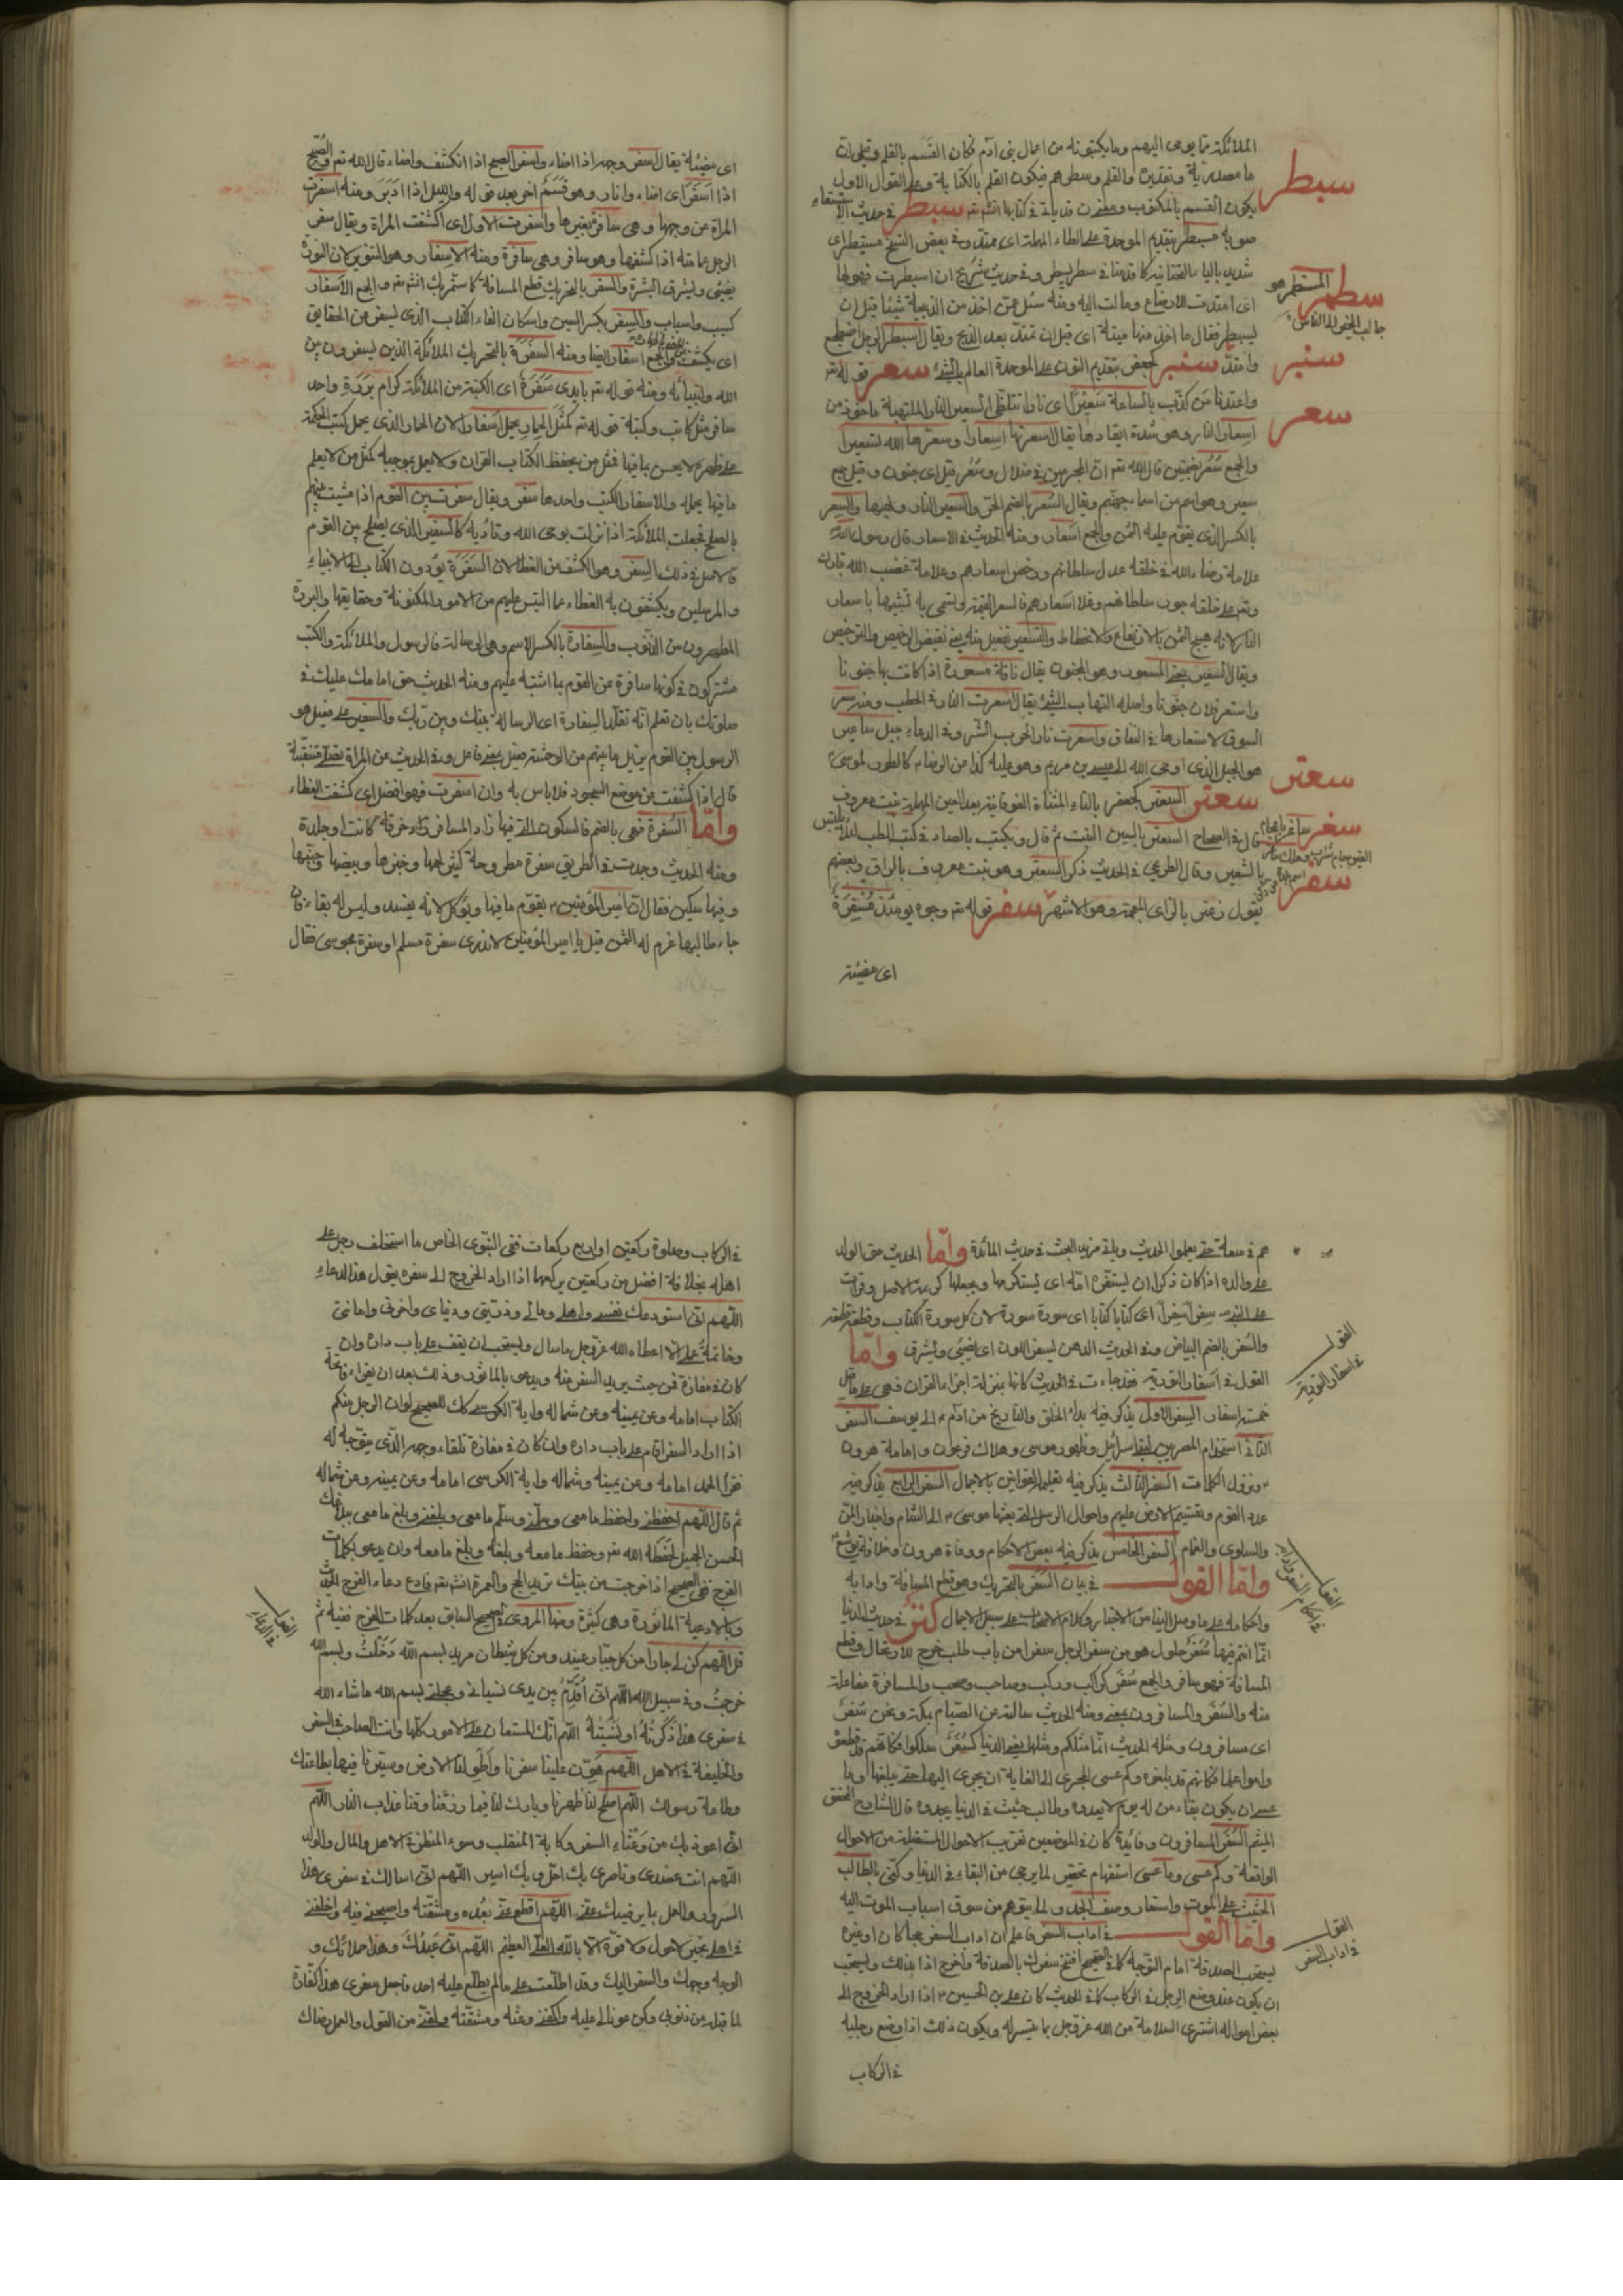 الملائكة مما يوحى اليهم وما يكتبونه من اعمال بنى آدم فكان القسم بالقلم وقيل ان
ما مصدرية وتقديره والقلم وسطرهم فيكون القلم بالكتابة وعلى القول الاول
سبطر
يكون القسم بالمكتوب قد ياتى فى كتابها انشا تع سبطر فى حديث الاستسقاء
بتقديم الموحدة على الطاء المهملة اى ممتد وفى بعض النسخ مسيطر اى
شديد بالياء التحتانية كما قدمنا فى سطر وفى حديث شريح ان اسبطرت فهو لها
سطمر المسطمر هو
اى امتدت للارضاع ومالت اليه ومنه سئل عمن اخذ من الذبيحة شيئا قبل ان
يسبطر فقال ما اخذ منها ميتة اى قبل ان تمتد بعد الذبح ويقال اسبطر الرجل اضطجع
سنبر
وامتد سنبر كجعفر بتقديم النون على الموحدة العالم بالشئ سعر قوله تع
سعر
واعتدنا لمن كذب بالساعة سعيرا اى نارا تتلظى السعير النار الملتهبة ماخوذ من
اسعار النار وهو شدة ايقادها يقال اسعرتها اسعارا وسعرها الله تسعيرا
والجمع سعر بضمتين قال الله تع ان المجرمين فى ضلال وسعر قيل اى جنون وقيل جمع
سعير وهو اسم من اسماء جهنم ويقال السعر بالضم الحر والسعير النار ولهبها والسعر
بالكسر الذى يقوم عليه الثمن والجمع اسعار ومنه الحديث فى الاسعار قال رسول الله
علامة رضاء الله فى خلقه عدل سلطانهم ورخص اسعارهم وعلامة غضب الله تبارك
وتع على خلقه جور سلطانهم وغلا اسعارهم فالسعر القيمة وتسمى به تشبيها باسعار
النار لانه يهيج الثمن بالارتفاع والانخطاط والتسعير تفعيل منه نقيض الرخيص والترخيص
ويقال السعير بمعنى المسعور وهو المجنون يقال ناقة مسعورة اذا كانت بها جنونا
واستعر فلان جنونا واصله التهاب الشئ يقال استعرت النار فى الحطب ومنه سعر
السوق لاستعارها فى النفاق واسعرت نار الحرب الشر وفى الدعاء جبل ساعير
هو الجبل الذى اوحى الله الى عيسى بن مريم وهو عليه كذا عن الرضا كالطور لموسى
سعتر
سعتر السعتر كجعفر بالتاء المثناة الفوقانية بعد العين المهملة نبت معروف
قال فى الصحاح السعتر بالسين النبت ثم قال ويكتب بالصاد فى كتب الطب لئلا يلتبس
سفر
بالشعير وقال الطريحى فى الحديث ذكر السعتر وهو نبت معروف بالعراق وبعضهم
يقول زعتر بالزاى المعجمة وهو الاشهر سفر قوله تع وجوه يومئذ مسفرة
اى مضيئة
اى مضيئة يقال اسفر وجهه اذا اضاء واسفر الصبح اذا انكشف واضاء قال الله تع والصبح
اذا اسفر اى اضاء وانار وهو قسم اخر بعد قوله والليل اذا ادبر ومنه اسفرت
المراة عن وجهها وهى سافرة بغيرها واسفرت الاول اى اكشفت المراة ويقال سفر
الرجل عمامته اذا كشفها وهو سافر وهى سافرة ومنه الاسفار وهو التنوير لان النورة
يضيئى ويشرق البشرة والسفر بالتحريك قطع المسافة كما ستمر بك انشا تع والجمع الاسفار
كسبب واسباب والسفر بكسر السين واسكان الفاء الكتاب الذى يسفر عن الحقايق
اى يكشف والجمع اسفار ايضا ومنه السفرة بالتحريك الملائكة الذين يسفرون بين
الله وانبيائه ومنه قوله تع بايدى سفرة اى الكتبة من الملائكة كرام بررة واحد
سافر مثل كاتب وكتبة قوله تع كمثل الحمار يحمل اسفارا لان الحمار الذى يحمل كتب الحكمة
على ظهره لا يحسن بما فيها فمثل من يحفظ الكتاب القران ولا يعمل بموجبه كمثل من لا يعلم
ما فيها يحمله والاسفار الكتب واحدها سفر ويقال سفرت بين القوم اذا مشيت بينهم
بالصلح فجعلت الملائكة اذا نزلت بوحى الله وتاديبه كالسفير الذى يصلح بين القوم
فالاصل فى ذلك السفر وهو الكشف من الغطا لان السفرة يؤدون الكتاب الى الانبياء
والمرسلين ويكشفون به الغطاء عما التبس عليهم من الامور المكنونة وحقايقها والبررة
المطهرون من الذنوب والسفارة بالكسر الاسم وهى الرسالة فالرسول والملائكة والكتب
مشتركون فى كونها سافرة عن القوم بما اشتبه عليهم ومنه الحديث حق امامك عليك فى
صلوتك بان تعلم انه تقلد السفارة اى الرسالة بينك وبين ربك والسفير على فعيل هو
الرسول بين القوم يزيل ما بينهم من الوحشة فعيل بمعنى فاعل وفى الحديث عن المراة تصلى متنقبة
قال اذا كشفت عن موضع السجود فلا باس به وان اسفرت فهو افضل اى كشفت الغطاء
واما السفرة فهى بالضم فالسكون التى فيها زاد المسافر كانت او جليدة
ومنه الحديث وجدت فى الطريق سفرة مطروحة كثير لحمها وخبزها وبيضها وجبنها
وفيها سكين فقال ان امير المؤمنين يقوم ما فيها ويؤكل لانه يفسد وليس له بقاء فان
جاء طالبها غرم له الثمن قيل يا امير المؤمنين لا ندرى سفرة مسلم او سفرة مجوسى فقال
هم فى سعة حتى يعلموا الحديث وياتى مزيد البحث فى حديث المائدة واما الحديث حق الولد
على والده اذا كان ذكرا ان يستفره امه اى يستكرمها ويجعلها كريمة الاصل وقرات
على النبى سفرا سفرا اى كتابا كتابا اى سورة سورة لان كل سورة الكتاب وقطعة قطعة
والسفر بالضم البياض وفى الحديث الدهن يسفر اللون اى يضيئ ويشرق واما
القول فى اسفار التورية
القول فى اسفار التورية فقد جاءت فى الحديث كانها بمنزلة اجزاء القران فهى على ما قيل
خمسة اسفار السفر الاول يذكر فيه بدء الخلق والتاريخ من ادم الى يوسف السفر
الثانى استخدام المصريين لبنى اسرائيل وظهور موسى وهلاك فرعون وامامة هرون
ونزول الكلمات السفر الثالث يذكر فيه تعليم القوانين بالاجمال السفر الرابع يذكر فيه
عدد القوم وتقسيم الارض عليهم واحوال الرسل التى بعثها موسى الى الشام واخبار المن
والسلوى والغمام السفر الخامس يذكر فيه بعض الاحكام ووفاة هرون وخلافة يوشع
واما القول فى بيان السفر بالتحريك وهو قطع المسافة وادابه
واحكامه على ما وصل الينا من الاخبار وكلام الاصحاب على سبيل الاجمال فى حديث الدنيا
انما انتم فيها سفر حلول هو من سفر الرجل سفرا من باب طلب خرج للارتحال وقطع
المسافة فهو سافر والجمع سفر كراكب وركب وصاحب وصحب والمسافرة مفاعلة
منه والسفر والمسافرون بمعنى ومنه الحديث سالته عن الصيام بمكة ونحن سفر
اى مسافرون ومثله الحديث انما مثلكم ومثلها يعنى الدنيا كسفر سلكوا فكانهم قد قطعوه
واموا علما فكانهم قد بلغوه وكم عسى المجرى الى الغاية ان يجرى اليها حتى يبلغها وما
عسى ان يكون بقاء من له يوم لا يعدوه وطالب حثيث فى الدنيا يحدوه قال الشارح المحقق
الميثم السفر المسافرون وفائدة كان فى الموضعين تقريب الاحوال المستقبلة من الاحوال
الواقعة وكم عسى وما عسى استفهام تحقير لما يرجى من البقاء فى الدنيا وكنى بالطالب
الحثيث على الموت واستعار وصف الحدو لما يتوهم من سوق اسباب الموت اليه
القول فى اداب السفر
واما القول فى اداب السفر فاعلم ان اداب السفر حجا كان او غيره
يستحب الصدقة امام التوجه كما فى الصحيح افتتح سفرك بالصدقة واخرج اذا بدا لك ويستحب
ان يكون عند وضع الرجل فى الركاب كما فى الحديث كان على بن الحسين اذا اراد الخروج الى
بعض امواله اشترى السلامة من الله عز وجل بما تيسر له ويكون ذلك اذا وضع رجليه
فى الركاب
فى الركاب وصلوة ركعتين او اربع ركعات ففى النبوى الخاص ما استخلف رجل على
اهله بخلافة افضل من ركعتين يركعهما اذا اراد الخروج الى سفره يقول هذا الدعاء
اللهم انى استودعك نفسى واهلى ومالى وذريتى ودنياى واخرتى وامانتى
وخاتمة عملى الا اعطاه الله عز وجل ما سال ويستحب ان يقف على باب داره وان
كان فى مفازة فمن حيث يريد السفر منه ويدعى بالماثور وذلك بعد ان يقراء فاتحة
الكتاب امامه وعن يمينه وعن شماله واية الكرسى كذلك للصحيح لو ان الرجل منكم
اذا اراد السفر اقام على باب داره وان كان فى مفازة تلقاء وجهه الذى يتوجه له
فقرأ الحمد امامه وعن يمينه وشماله واية الكرسى امامه وعن يمينه وعن شماله
ثم قال اللهم احفظنى واحفظ ما معى وسلمنى وسلم ما معى وبلغنى وبلغ ما معى ببلاغك
الحسن الجميل لحفظه الله تع وحفظ ما معه وبلغه وبلغ ما معه وان يدعو بكلمات
الفرج ففى الصحيح اذا خرجت من بيتك تريد الحج والعمرة انشا تع فادع دعاء الفرج الحديث
وبالادعية الماثورة وهى كثيرة ومنها المروى فى الصحيح السابق بعد كلمات الفرج ففيه ثم
قل اللهم كن لى جارا من كل جبار عنيد ومن كل شيطان مريد بسم الله دخلت وبسم الله
خرجت وفى سبيل الله اللهم انى اقدم بين يدى نسيانى وعجلتى بسم الله ما شاء الله
فى سفرى هذا ذكرته او نسيته اللهم انت المستعان على الامور كلها وانت الصاحب فى السفر
والخليفة فى الاهل اللهم هون علينا سفرنا واطو لنا الارض وسيرنا فيها بطاعتك
وطاعة رسولك اللهم اصلح لنا ظهرنا وبارك لنا فيما رزقتنا وقنا عذاب النار اللهم
انى اعوذ بك من وعثاء السفر وكابة المنقلب وسوء المنظر فى الاهل والمال والولد
اللهم انت عضدى وناصرى بك احل وبك اسير اللهم انى اسالك فى سفرى هذا
السرور والعمل بما يرضيك عنى اللهم اقطع عنى بعده ومشقته واصحبنى فيه واخلفنى
فى اهلى بخير لا حول ولا قوة الا بالله العلى العظيم اللهم انى عبدك وهذا حملانك و
الوجه وجهك والسفر اليك وقد اطلعت على ما لم يطلع عليه احد فاجعل سفرى هذا كفارة
لما قبله من ذنوبى وكن عونا لى عليه واكفنى وعثه ومشقته ولقنى من القول والعمل رضاك